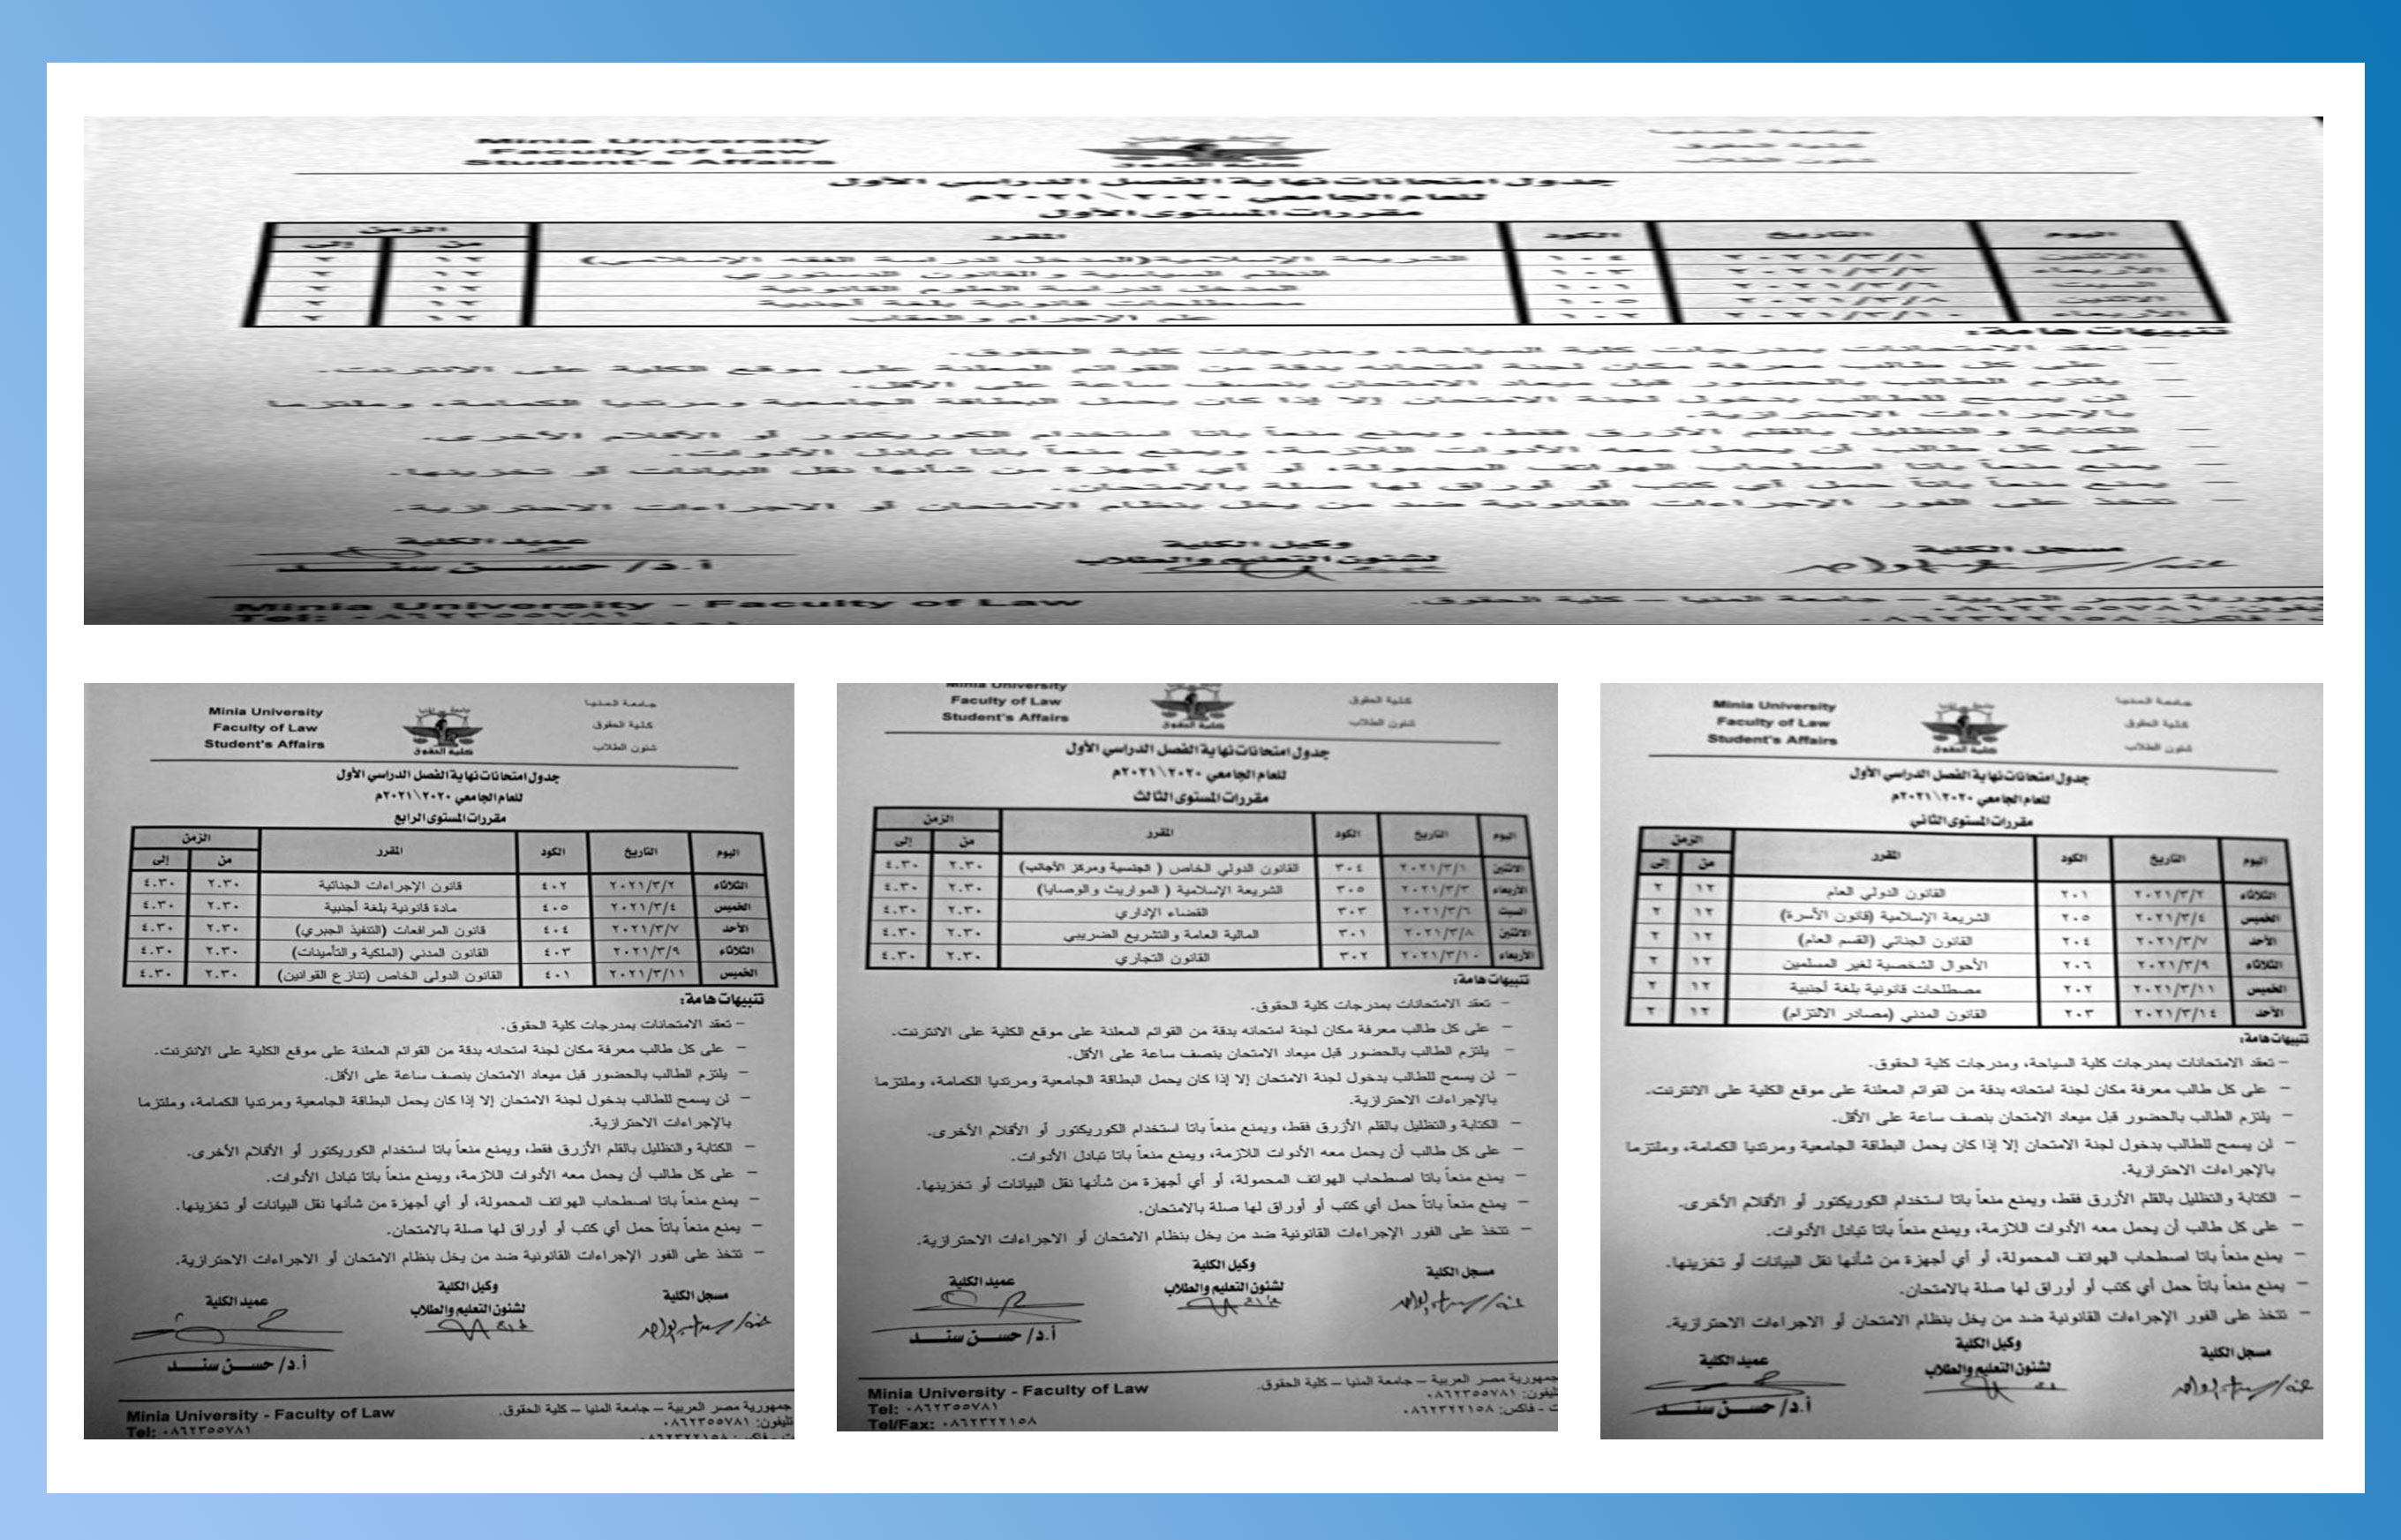 Minia University
Faculty of Law
Student's Affairs
جامعة المنيا
كلية الحقوق
شئون الطلاب
كلية الحقوق
جدول امتحانات نهاية الفصل الدراسي الأول
للعام الجامعي ٢٠٢٠\٢٠٢١م
مقررات المستوى الأول
اليوم التاريخ الكود المقرر الزمن
من إلى
الاثنين ٢٠٢١/٣/١ ١٠٤ الشريعة الإسلامية(المدخل لدراسة الفقه الإسلامي) ١٢ ٢
الأربعاء ٢٠٢١/٣/٣ ١٠٣ النظم السياسية والقانون الدستوري ١٢ ٢
السبت ٢٠٢١/٣/٦ ١٠١ المدخل لدراسة العلوم القانونية ١٢ ٢
الاثنين ٢٠٢١/٣/٨ ١٠٥ مصطلحات قانونية بلغة أجنبية ١٢ ٢
الأربعاء ٢٠٢١/٣/١٠ ١٠٢ علم الإجرام والعقاب ١٢ ٢
تنبيهات هامة:
– تعقد الامتحانات بمدرجات كلية السياحة، ومدرجات كلية الحقوق.
– على كل طالب معرفة مكان لجنة امتحانه بدقة من القوائم المعلنة على موقع الكلية على الانترنت.
– يلتزم الطالب بالحضور قبل ميعاد الامتحان بنصف ساعة على الأقل.
– لن يسمح للطالب بدخول لجنة الامتحان إلا إذا كان يحمل البطاقة الجامعية ومرتديا الكمامة، وملتزما
بالإجراءات الاحترازية.
– الكتابة والتظليل بالقلم الأزرق فقط، ويمنع منعاً باتا استخدام الكوريكتور أو الأقلام الأخرى.
– على كل طالب أن يحمل معه الأدوات اللازمة، ويمنع منعاً باتا تبادل الأدوات.
– يمنع منعاً باتا اصطحاب الهواتف المحمولة، أو أي أجهزة من شأنها نقل البيانات أو تخزينها.
– يمنع منعاً باتاً حمل أي كتب أو أوراق لها صلة بالامتحان.
– تتخذ على الفور الإجراءات القانونية ضد من يخل بنظام الامتحان أو الاجراءات الاحترازية.
مسجل الكلية
وكيل الكلية
لشئون التعليم والطلاب
عميد الكلية
أ.د/ حسن سند
Minia University - Faculty of Law
Tel: ٠٨٦٢٣٥٥٧٨١
جمهورية مصر العربية – جامعة المنيا – كلية الحقوق.
تليفون: ٠٨٦٢٣٥٥٧٨١
ت - فاكس: ٠٨٦٢٣٢٢١٥٨
Minia University
Faculty of Law
Student's Affairs
جامعة المنيا
كلية الحقوق
شئون الطلاب
كلية الحقوق
جدول امتحانات نهاية الفصل الدراسي الأول
للعام الجامعي ٢٠٢٠\٢٠٢١م
مقررات المستوى الثاني
اليوم التاريخ الكود المقرر الزمن
من إلى
الثلاثاء ٢٠٢١/٣/٢ ٢٠١ القانون الدولي العام ١٢ ٢
الخميس ٢٠٢١/٣/٤ ٢٠٥ الشريعة الإسلامية (قانون الأسرة) ١٢ ٢
الأحد ٢٠٢١/٣/٧ ٢٠٤ القانون الجنائي (القسم العام) ١٢ ٢
الثلاثاء ٢٠٢١/٣/٩ ٢٠٦ الأحوال الشخصية لغير المسلمين ١٢ ٢
الخميس ٢٠٢١/٣/١١ ٢٠٢ مصطلحات قانونية بلغة أجنبية ١٢ ٢
الأحد ٢٠٢١/٣/١٤ ٢٠٣ القانون المدني (مصادر الالتزام) ١٢ ٢
تنبيهات هامة:
– تعقد الامتحانات بمدرجات كلية السياحة، ومدرجات كلية الحقوق.
– على كل طالب معرفة مكان لجنة امتحانه بدقة من القوائم المعلنة على موقع الكلية على الانترنت.
– يلتزم الطالب بالحضور قبل ميعاد الامتحان بنصف ساعة على الأقل.
– لن يسمح للطالب بدخول لجنة الامتحان إلا إذا كان يحمل البطاقة الجامعية ومرتديا الكمامة، وملتزما
بالإجراءات الاحترازية.
– الكتابة والتظليل بالقلم الأزرق فقط، ويمنع منعاً باتا استخدام الكوريكتور أو الأقلام الأخرى.
– على كل طالب أن يحمل معه الأدوات اللازمة، ويمنع منعاً باتا تبادل الأدوات.
– يمنع منعاً باتا اصطحاب الهواتف المحمولة، أو أي أجهزة من شأنها نقل البيانات أو تخزينها.
– يمنع منعاً باتاً حمل أي كتب أو أوراق لها صلة بالامتحان.
– تتخذ على الفور الإجراءات القانونية ضد من يخل بنظام الامتحان أو الاجراءات الاحترازية.
مسجل الكلية
وكيل الكلية
لشئون التعليم والطلاب
عميد الكلية
أ.د/ حسن سند
Minia University
Faculty of Law
Student's Affairs
كلية الحقوق
شئون الطلاب
كلية الحقوق
جدول امتحانات نهاية الفصل الدراسي الأول
للعام الجامعي ٢٠٢٠\٢٠٢١م
مقررات المستوى الثالث
اليوم التاريخ الكود المقرر الزمن
من إلى
الاثنين ٢٠٢١/٣/١ ٣٠٤ القانون الدولي الخاص ( الجنسية ومركز الأجانب) ٢.٣٠ ٤.٣٠
الأربعاء ٢٠٢١/٣/٣ ٣٠٥ الشريعة الإسلامية ( المواريث والوصايا) ٢.٣٠ ٤.٣٠
السبت ٢٠٢١/٣/٦ ٣٠٣ القضاء الإداري ٢.٣٠ ٤.٣٠
الاثنين ٢٠٢١/٣/٨ ٣٠١ المالية العامة والتشريع الضريبي ٢.٣٠ ٤.٣٠
الأربعاء ٢٠٢١/٣/١٠ ٣٠٢ القانون التجاري ٢.٣٠ ٤.٣٠
تنبيهات هامة:
– تعقد الامتحانات بمدرجات كلية الحقوق.
– على كل طالب معرفة مكان لجنة امتحانه بدقة من القوائم المعلنة على موقع الكلية على الانترنت.
– يلتزم الطالب بالحضور قبل ميعاد الامتحان بنصف ساعة على الأقل.
– لن يسمح للطالب بدخول لجنة الامتحان إلا إذا كان يحمل البطاقة الجامعية ومرتديا الكمامة، وملتزما
بالإجراءات الاحترازية.
– الكتابة والتظليل بالقلم الأزرق فقط، ويمنع منعاً باتا استخدام الكوريكتور أو الأقلام الأخرى.
– على كل طالب أن يحمل معه الأدوات اللازمة، ويمنع منعاً باتا تبادل الأدوات.
– يمنع منعاً باتا اصطحاب الهواتف المحمولة، أو أي أجهزة من شأنها نقل البيانات أو تخزينها.
– يمنع منعاً باتاً حمل أي كتب أو أوراق لها صلة بالامتحان.
– تتخذ على الفور الإجراءات القانونية ضد من يخل بنظام الامتحان أو الاجراءات الاحترازية.
مسجل الكلية
وكيل الكلية
لشئون التعليم والطلاب
عميد الكلية
أ.د/ حسن سند
Minia University - Faculty of Law
Tel: ٠٨٦٢٣٥٥٧٨١
Tel/Fax: ٠٨٦٢٣٢٢١٥٨
جمهورية مصر العربية – جامعة المنيا – كلية الحقوق.
تليفون: ٠٨٦٢٣٥٥٧٨١
ت - فاكس: ٠٨٦٢٣٢٢١٥٨
Minia University
Faculty of Law
Student's Affairs
جامعة المنيا
كلية الحقوق
شئون الطلاب
كلية الحقوق
جدول امتحانات نهاية الفصل الدراسي الأول
للعام الجامعي ٢٠٢٠\٢٠٢١م
مقررات المستوى الرابع
اليوم التاريخ الكود المقرر الزمن
من إلى
الثلاثاء ٢٠٢١/٣/٢ ٤٠٢ قانون الإجراءات الجنائية ٢.٣٠ ٤.٣٠
الخميس ٢٠٢١/٣/٤ ٤٠٥ مادة قانونية بلغة أجنبية ٢.٣٠ ٤.٣٠
الأحد ٢٠٢١/٣/٧ ٤٠٤ قانون المرافعات (التنفيذ الجبري) ٢.٣٠ ٤.٣٠
الثلاثاء ٢٠٢١/٣/٩ ٤٠٣ القانون المدني (الملكية والتأمينات) ٢.٣٠ ٤.٣٠
الخميس ٢٠٢١/٣/١١ ٤٠١ القانون الدولى الخاص (تنازع القوانين) ٢.٣٠ ٤.٣٠
تنبيهات هامة:
– تعقد الامتحانات بمدرجات كلية الحقوق.
– على كل طالب معرفة مكان لجنة امتحانه بدقة من القوائم المعلنة على موقع الكلية على الانترنت.
– يلتزم الطالب بالحضور قبل ميعاد الامتحان بنصف ساعة على الأقل.
– لن يسمح للطالب بدخول لجنة الامتحان إلا إذا كان يحمل البطاقة الجامعية ومرتديا الكمامة، وملتزما
بالإجراءات الاحترازية.
– الكتابة والتظليل بالقلم الأزرق فقط، ويمنع منعاً باتا استخدام الكوريكتور أو الأقلام الأخرى.
– على كل طالب أن يحمل معه الأدوات اللازمة، ويمنع منعاً باتا تبادل الأدوات.
– يمنع منعاً باتا اصطحاب الهواتف المحمولة، أو أي أجهزة من شأنها نقل البيانات أو تخزينها.
– يمنع منعاً باتاً حمل أي كتب أو أوراق لها صلة بالامتحان.
– تتخذ على الفور الإجراءات القانونية ضد من يخل بنظام الامتحان أو الاجراءات الاحترازية.
مسجل الكلية
وكيل الكلية
لشئون التعليم والطلاب
عميد الكلية
أ.د/ حسن سند
Minia University - Faculty of Law
Tel: ٠٨٦٢٣٥٥٧٨١
جمهورية مصر العربية – جامعة المنيا – كلية الحقوق.
تليفون: ٠٨٦٢٣٥٥٧٨١
ت - فاكس: ٠٨٦٢٣٢٢١٥٨